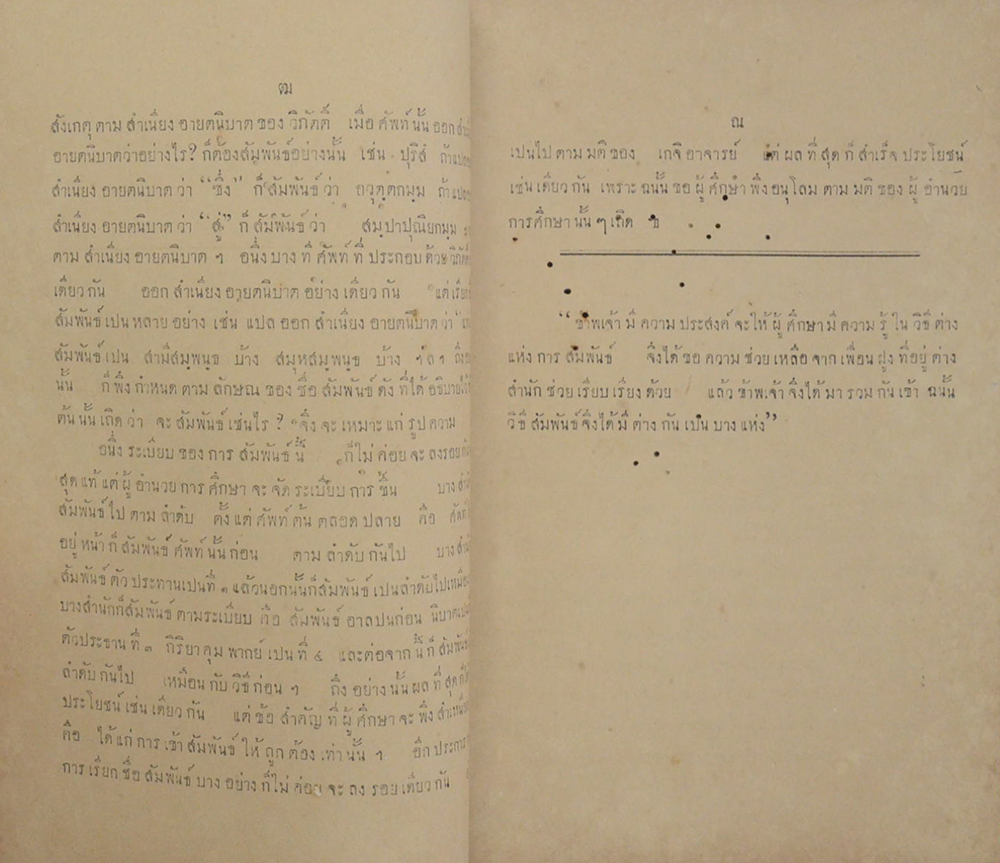 ฒ
สังเกตุ ตาม สำเนียง อายตนิบาต ของ วิภัตติ์ เมื่อ ศัพท์ นั้น ออก
อายตนิบาตว่าอย่างไร? ก็ต้องสัมพันธ์อย่างนั้น เช่น ปุริสํ ถ้า
สำเนียง อายตนิบาต ว่า “ซึ่ง” ก็ สัมพันธ์ ว่า อวุตฺตกมฺม ถ้า
สำเนียง อายตนิบาต ว่า “สู่” ก็ สัมพันธ์ ว่า สมฺปาปุณิยกมฺม
ตาม สำเนียง อายตนิบาต ฯ อนึ่ง บาง ที ศัพท์ ที่ ประกอบ ด้วย
เดียว กัน ออก สำเนียง อายตนิบาต อย่าง เดียว กัน แต่
สัมพันธ์ เปน หลาย อย่าง เช่น แปล ออก สำเนียง อายตนิบาต ว่า
สัมพันธ์ เปน สามีสมฺพนฺธ บ้าง สมุหสมฺพนฺธ บ้าง ฯลฯ
นั้น ก็ พึง กำหนด ตาม ลักษณ ของ ชื่อ สัมพันธ์ ดัง ที่ ได้
ต้น นั้น เถิด ว่า จะ สัมพันธ์ เช่นไร ? จึง จะ เหมาะ แก่ รูป ความ
อนึ่ง ระเบียบ ของ การ สัมพันธ์ นี้ ก็ไม่ ค่อย จะ ลงรอย
สุด แท้ แต่ ผู้ อำนวย การ ศึกษา จะ จัด ระเบียบ การ ขึ้น บาง
สัมพันธ์ ไป ตาม ลำดับ ตั้ง แต่ ศัพท์ ต้น ตลอด ปลาย คือ
อยู่ หน้า ก็ สัมพันธ์ ศัพท์ นั้น ก่อน ตาม ลำดับ กันไป บาง
สัมพันธ์ ตัว ประทานเปนที่ ๑ แล้วนอกนั้นก็สัมพันธ์ เปนลำดับไป
บางสำนักก็สัมพันธ์ ตามระเบียบ คือ สัมพันธ์ อาลปนก่อน
ตัวประธาน ที่ ๓ กิริยา คุม พากย์ เปน ที่ ๔ และต่อจาก นี้ ก็
ลำดับ กันไป เหมือน กับ วิธี ก่อน ๆ ถึง อย่าง นั้น ผล ที่ สุด
ประโยชน์ เช่น เดียว กัน แต่ ข้อ สำคัญ ที่ ผู้ ศึกษา จะ พึง
คือ ได้ แก่ การ เข้า สัมพันธ์ ให้ ถูก ต้อง เท่า นั้น ฯ อีก
การ เรียก ชื่อ สัมพันธ์ บาง อย่าง ก็ไม่ ค่อย จะ ลง รอย เดียว กัน
ณ
เปนไป ตาม มติ ของ เกจิ อาจารย์ แต่ ผล ที่ สุด ก็ สำเร็จ ประโยชน์
เช่น เดียว กัน เพราะ ฉนั้น ขอ ผู้ ศึกษา พึง อนุโลม ตาม มติ ของ ผู้ อำนวย
การศึกษา นั้น ๆ เถิด
“ข้าพเจ้า มี ความ ประสงค์ จะให้ ผู้ ศึกษา มี ความ รู้ ใน วิธี ต่าง
แห่ง การ สัมพันธ์ จึงได้ ขอ ความ ช่วย เหลือ จาก เพื่อน ฝูง ที่อยู่ ต่าง
สำนัก ช่วย เรียบ เรียง ด้วย แล้ว ข้าพเจ้า จึงได้ มา รวม กัน เข้า ฉนั้น
วิธี สัมพันธ์ จึงได้ มี ต่าง กัน เปน บาง แห่ง”